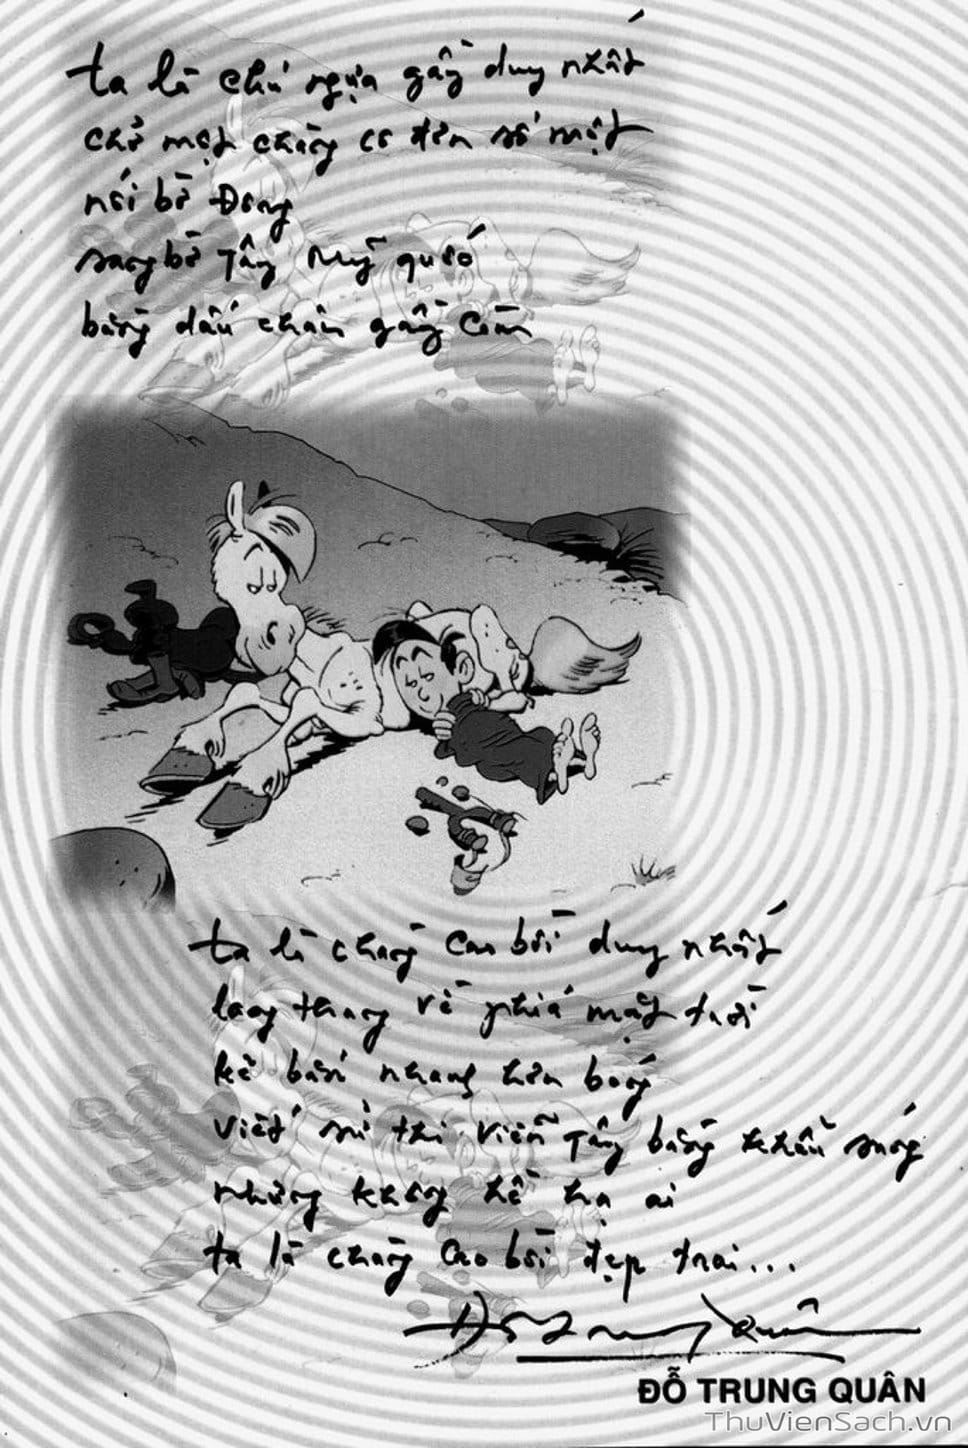 ta là chú ngựa gầy duy nhất
chở một chàng cô đơn số một
nối bờ Đông
sang bờ Tây Mỹ quốc
bằng dấu chân gầy còm
ta là chàng cao bồi duy nhất
lang thang về phía mặt trời
kẻ bắn nhanh hơn bóng
viết sử thi viễn Tây bằng khẩu súng
nhưng không hề hạ ai
ta là chàng cao bồi đẹp trai...
Đỗ Trung Quân
ĐỖ TRUNG QUÂN
ThuVienSach.vn